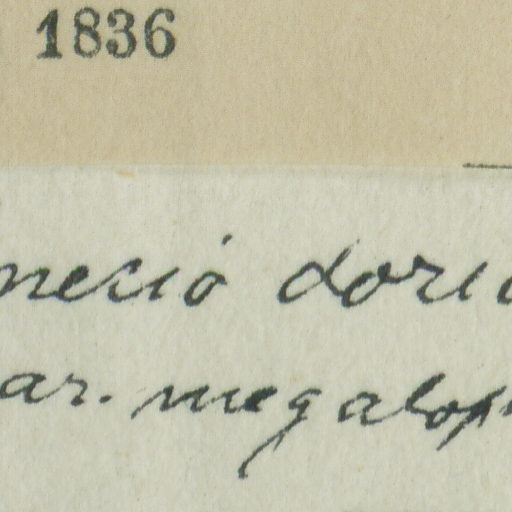 1836
necio doric
ar. megalop